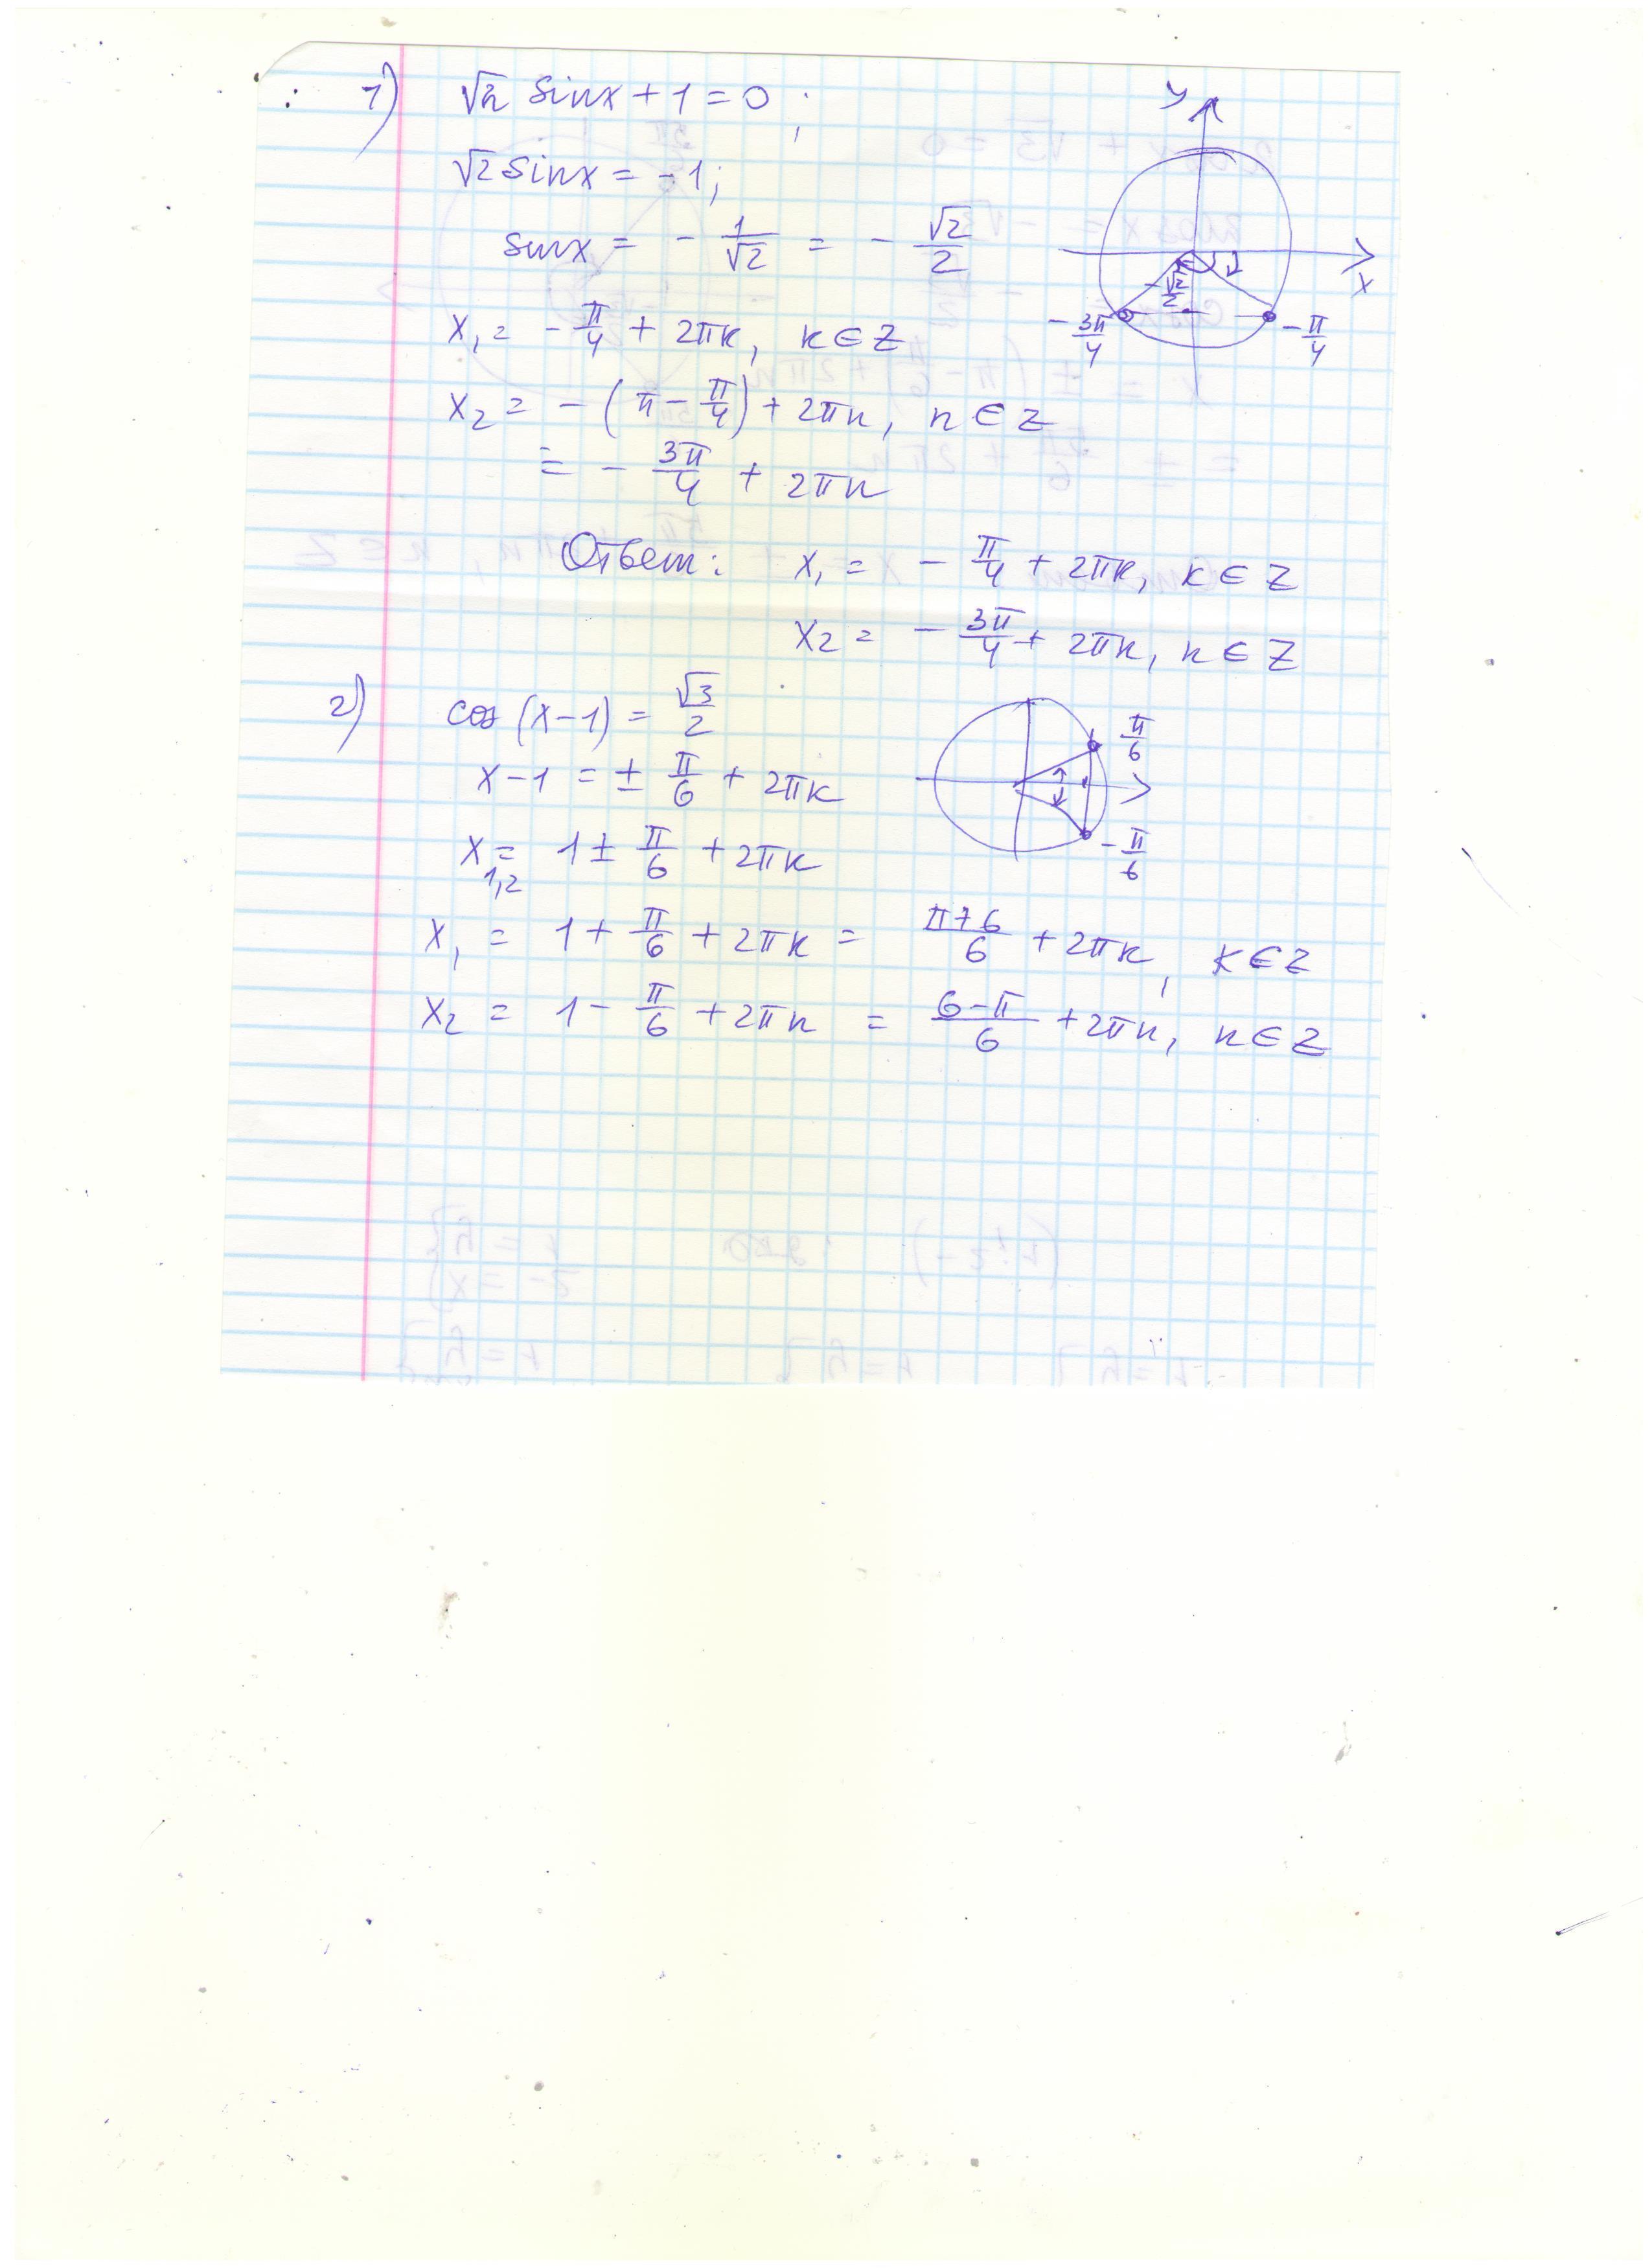 1) √2 sinx + 1 = 0;
√2 sinx = -1;
sinx = - 1/√2 = - √2/2
x₁ = - π/4 + 2πk, k ∈ Z
x₂ = - (π - π/4) + 2πn, n ∈ Z
= - 3π/4 + 2πn
y
x
- √2/2
- 3π/4
- π/4
Ответ: x₁ = - π/4 + 2πk, k ∈ Z
x₂ = - 3π/4 + 2πn, n ∈ Z
2) cos (x-1) = √3/2
x-1 = ± π/6 + 2πk
x₁,₂ = 1 ± π/6 + 2πk
π/6
- π/6
x₁ = 1 + π/6 + 2πk = π+6/6 + 2πk, k ∈ Z
x₂ = 1 - π/6 + 2πn = 6-π/6 + 2πn, n ∈ Z